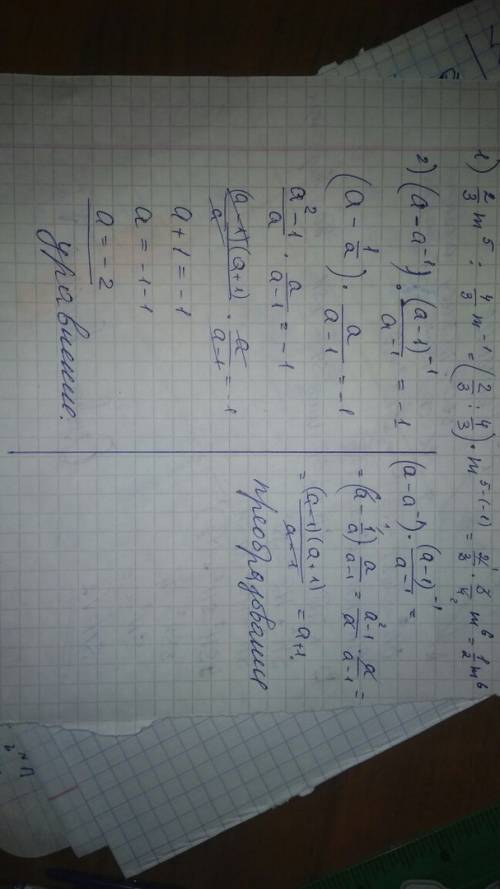 1) 2/3 m⁵ : 4/3 m⁻¹ = (2/3 : 4/3) · m⁵⁻⁽⁻¹⁾ = 2/3 · 3/4 m⁶ = 1/2 m⁶
2) (a - a⁻¹) · (a-1)⁻¹/a⁻¹ = -1
(a - 1/a) · a/(a-1) = -1
(a²-1)/a · a/(a-1) = -1
(a-1)(a+1)/a · a/(a-1) = -1
a + 1 = -1
a = -1-1
a = -2
уравнение.
(a - a⁻¹) · (a-1)⁻¹/a⁻¹ =
= (a - 1/a) a/(a-1) = (a²-1)/a · a/(a-1) =
= (a-1)(a+1)/(a-1) = a+1.
преобразование